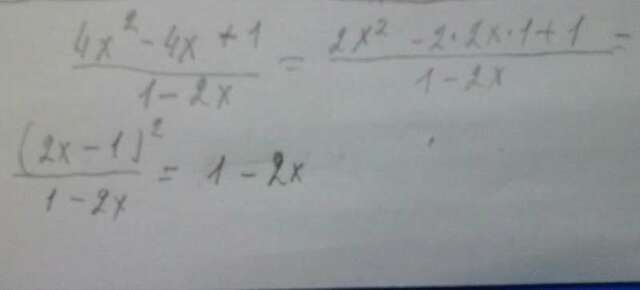 (4x² - 4x + 1)/(1 - 2x) = (2x² - 2·2x·1 + 1)/(1 - 2x) =
(2x - 1)²/(1 - 2x) = 1 - 2x